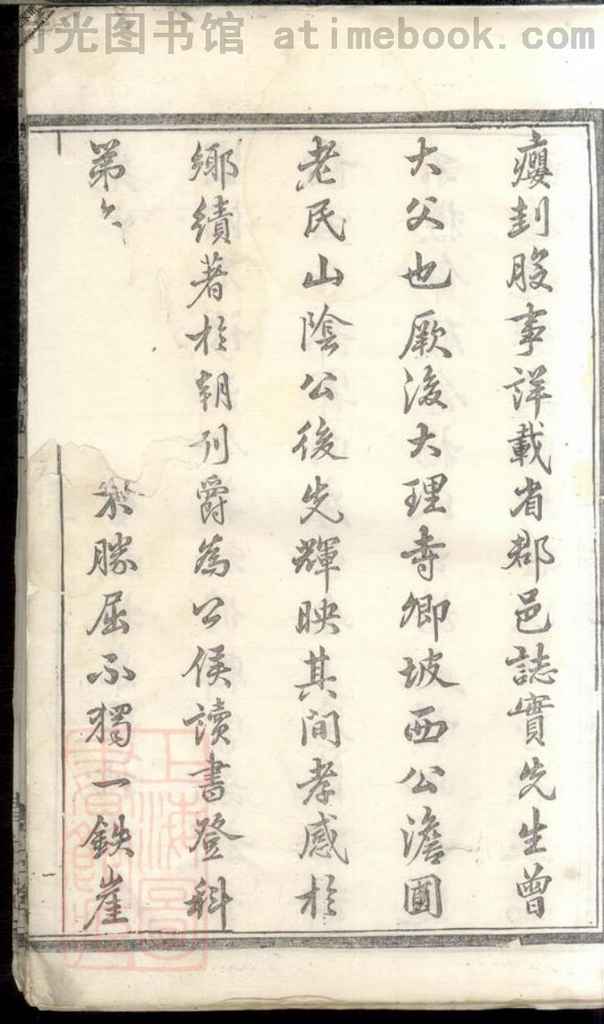 时光图书馆 atimebook.com
癭刲股事詳載省郡邑誌實先生曾
大父也厥後大理寺卿坡西公澹圃
老民山陰公後先輝映其間孝感於
鄉績著於朝列爵為公侯讀書登科
第
勝屈而獨一鉄崖
上海圖書館